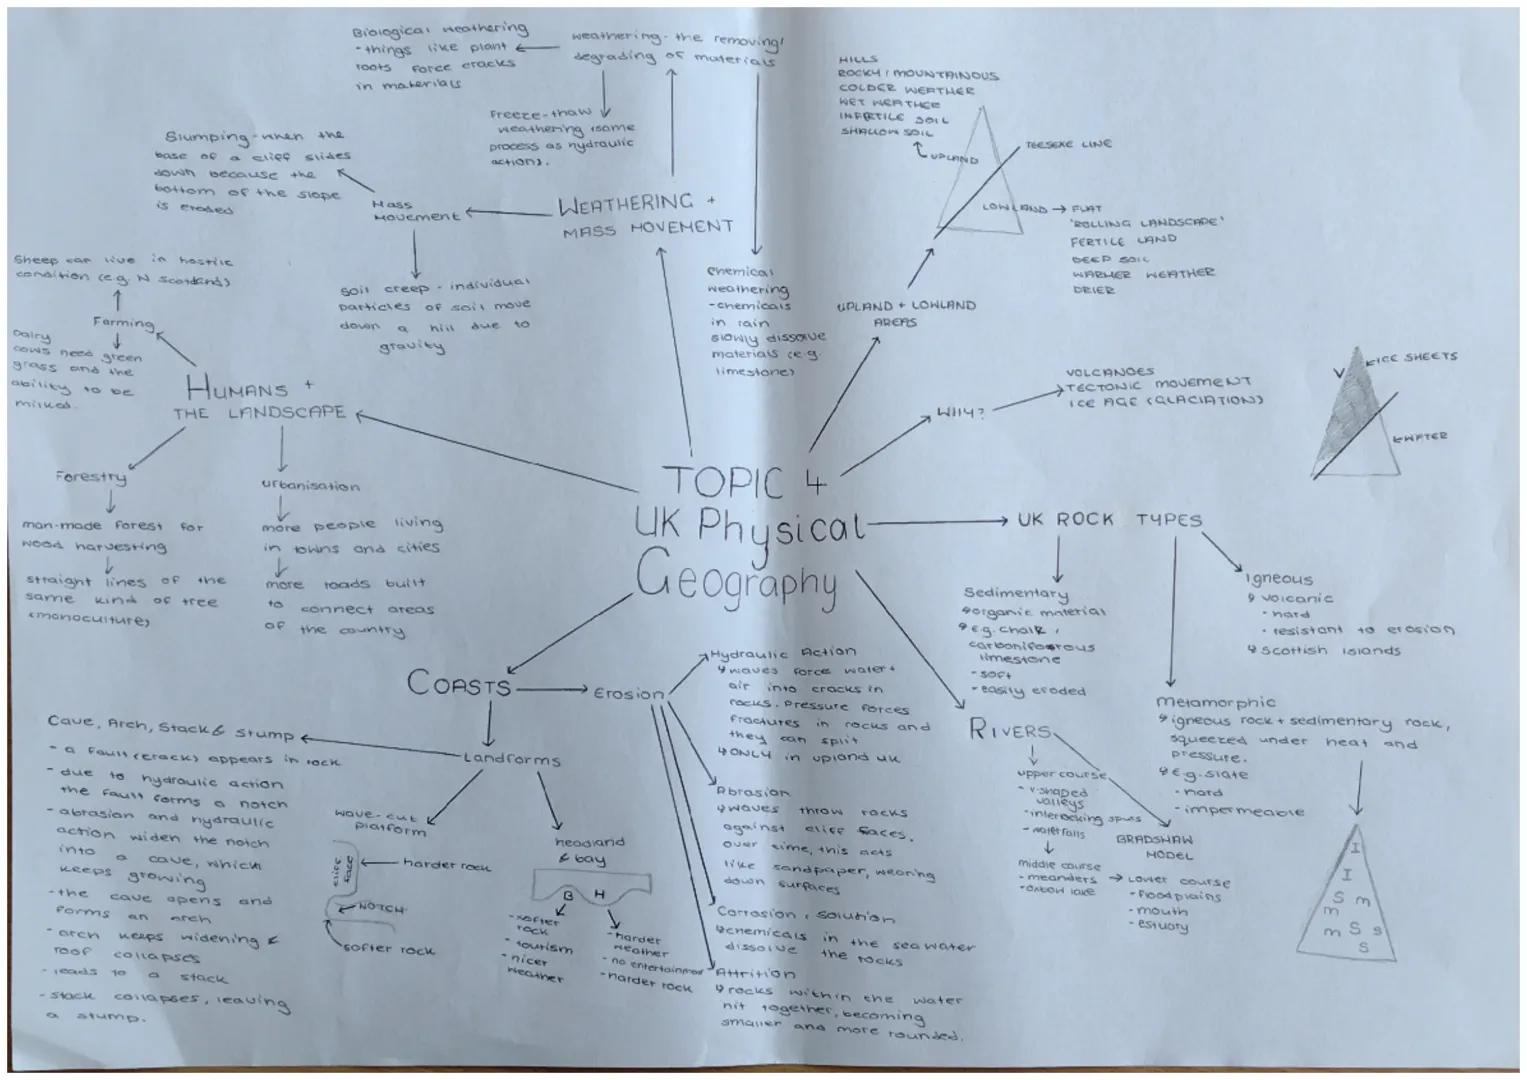 TOPIC 4
UK Physical
Geography
WEATHERING +
MASS MOVEMENT
weathering - the removing/
degrading of materials
Biological weathering
- things like plant
roots force cracks
in materials
Freeze-thaw
weathering (same
process as hydraulic
action).
chemical
weathering
- chemicals
in rain
slowly dissolve
materials (e.g.
limestone)
Mass
Movement
Slumping - when the
base of a cliff slides
down because the
bottom of the slope
is eroded
soil creep - individual
particles of soil move
down a hill due to
gravity
UPLAND + LOWLAND
AREAS
HILLS
ROCKY / MOUNTAINOUS
COLDER WEATHER
WET WEATHER
INFERTILE SOIL
SHALLOW SOIL
UPLAND
TEESEXE LINE
LOWLAND → FLAT
'ROLLING LANDSCAPE'
FERTILE LAND
DEEP SOIL
WARMER WEATHER
DRIER
WHY?
VOLCANOES
TECTONIC MOVEMENT
ICE AGE (GLACIATION)
ICE SHEETS
WATER
UK ROCK TYPES
Sedimentary
organic material
e.g. chalk,
carboniforous
limestone
- soft
- easily eroded
Igneous
volcanic
- hard
- resistant to erosion
Scottish islands
metamorphic
igneous rock + sedimentary rock,
squeezed under heat and
pressure.
e.g. slate
- hard
- impermeable
I
I
S m
m
m S S
S
RIVERS
upper course
- v-shaped
valleys
- interlocking spurs
- waterfalls
middle course
- meanders
- oxbow lake
→ Lower course
- floodplains
- mouth
- estuary
BRADSHAW
MODEL
HUMANS +
THE LANDSCAPE
Farming
Sheep can live in hostile
condition (e.g. N Scotland)
Dairy
cows need green
grass and the
ability to be
milked.
Forestry
man-made forest for
wood harvesting
straight lines of the
same kind of tree
(monoculture)
urbanisation
more people living
in towns and cities
more roads built
to connect areas
of the country
COASTS
Erosion
Hydraulic Action
waves force water +
air into cracks in
rocks. Pressure forces
fractures in rocks and
they can split
ONLY in upland UK
Abrasion
waves throw rocks
against cliff faces.
over time, this acts
like sandpaper, wearing
down surfaces
Corrosion / solution
chemicals in the sea water
dissolve the rocks
Attrition
rocks within the water
hit together, becoming
smaller and more rounded.
Landforms
Cave, Arch, Stack & Stump
- a fault (crack) appears in rock
- due to hydraulic action
the fault forms a notch
- abrasion and hydraulic
action widen the notch
into a cave, which
keeps growing
- the cave opens and
forms an arch
- arch keeps widening &
roof collapses
- leads to a stack
- stack collapses, leaving
a stump.
wave-cut
platform
cliff
face
harder rock
NOTCH
softer rock
headland
& bay
B H
- softer
rock
- tourism
- nicer
weather
- harder
weather
- no entertainment
- harder rock